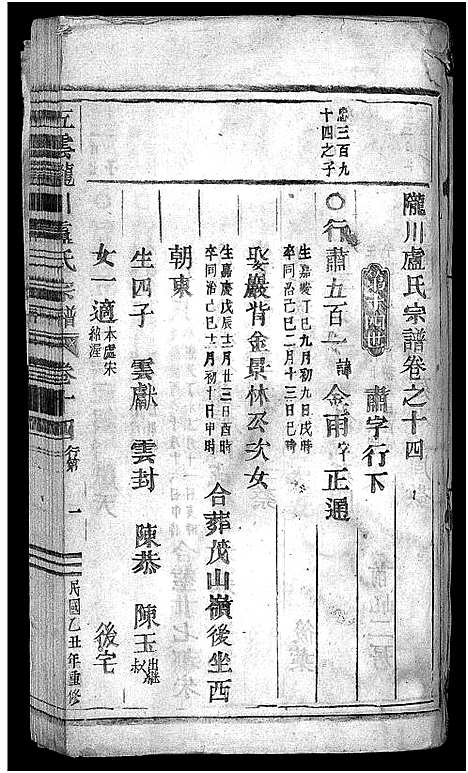 隴川盧氏宗譜卷之十四
肅字行下
忠三百九
十四之子
○行肅五百一 諱 金雨 字 正通
生嘉慶丁巳九月初九日戌時
卒同治己巳二月十三日巳時
娶巖背金景林公次女
生嘉慶戊辰十二月廿三日酉時
卒同治己巳十一月初十日申時
合葬茂山嶺後坐西
朝東
生四子 雲獻 雲封 陳恭 陳玉 出繼叔
女一 適 本處宋紹渥 後宅
五雲隴川盧氏宗譜 卷十四 行第 一 民國乙丑年重修